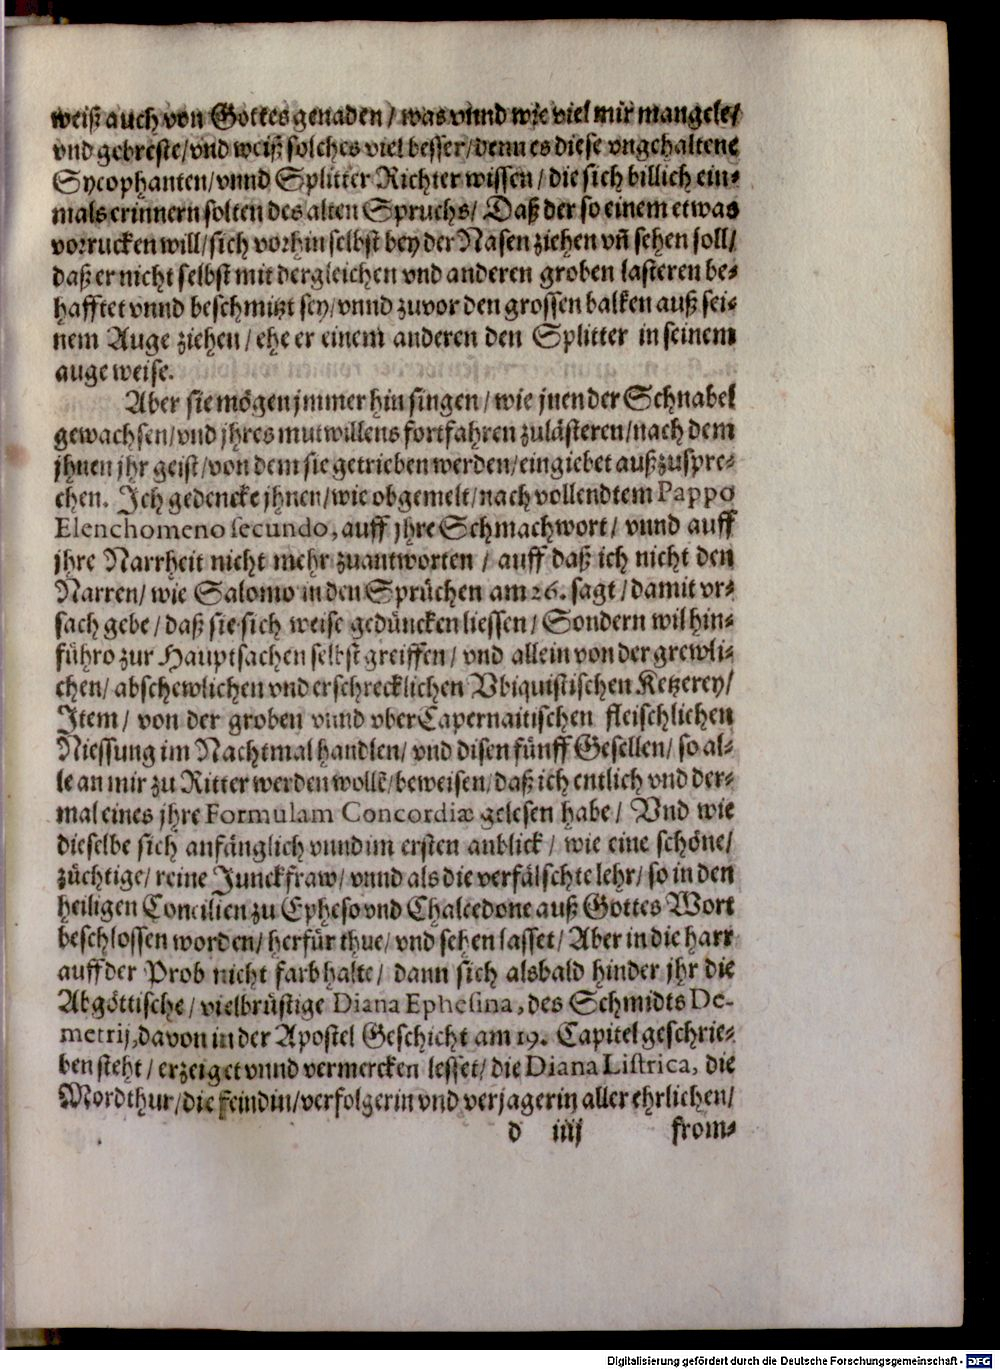 weiß auch von Gottes genaden / was vnnd wie viel mir mangele/
vnd gebreste/vnd weiß solches viel besser/denn es diese vngehaltene
Sycophanten/vnnd Splitter Richter wissen / die sich billich ein⸗
mals erinnern solten des alten Spruchs/ Daß der so einem etwas
vorrucken will/sich vorhin selbst bey der Nasen ziehen vñ sehen soll/
daß er nicht selbst mit dergleichen vnd anderen groben lasteren be⸗
hafftet vnnd beschmitzt sey/vnnd zuvor den grossen balken auß sei⸗
nem Auge ziehen / ehe er einem anderen den Splitter in seinem
auge weise.
Aber sie mögen jmmer hin singen / wie jnen der Schnabel
gewachsen/vnd jhres mutwillens fortfahren zulästeren/nach dem
jhnen jhr geist/von dem sie getrieben werden/eingiebet außzuspre⸗
chen. Ich gedencke jhnen/wie obgemelt/nach vollendtem Pappo
Elenchomeno secundo, auff jhre Schmachwort / vnnd auff
jhre Narrheit nicht mehr zuantworten / auff daß ich nicht den
Narren/ wie Salomo in den Sprüchen am 26. sagt / damit vr⸗
sach gebe / daß sie sich weise gedüncken liessen / Sondern wil hin⸗
führo zur Hauptsachen selbst greiffen / vnd allein von der grewli⸗
chen/ abschewlichen vnd erschrecklichen Vbiquistischen Ketzerey/
Item / von der groben vnnd vberCapernaitischen fleischlichen
Niessung im Nachtmal handlen/ vnd disen fünff Gesellen/ so al⸗
le an mir zu Ritter werden wollẽ/beweisen/daß ich entlich vnd der⸗
mal eines jhre Formulam Concordiæ gelesen habe / Vnd wie
dieselbe sich anfänglich vnnd im ersten anblick / wie eine schöne/
züchtige/ reine Junckfraw/ vnnd als die verfälschte lehr/ so in den
heiligen Concilien zu Epheso vnd Chalcedone auß Gottes Wort
beschlossen worden/ herfür thue/ vnd sehen lasset/ Aber in die harr
auff der Prob nicht farb halte/ dann sich alsbald hinder jhr die
Abgöttische/ vielbrüstige Diana Ephesina, des Schmidts De-
metrij, davon in der Apostel Geschicht am 19. Capitel geschrie⸗
ben steht/ erzeiget vnnd vermercken lesset/ die Diana Listrica, die
Mordthur/die feindin/verfolgerin vnd verjagerin aller ehrlichen/
d iiij from⸗
Digitalisierung gefördert durch die Deutsche Forschungsgemeinschaft - DFG